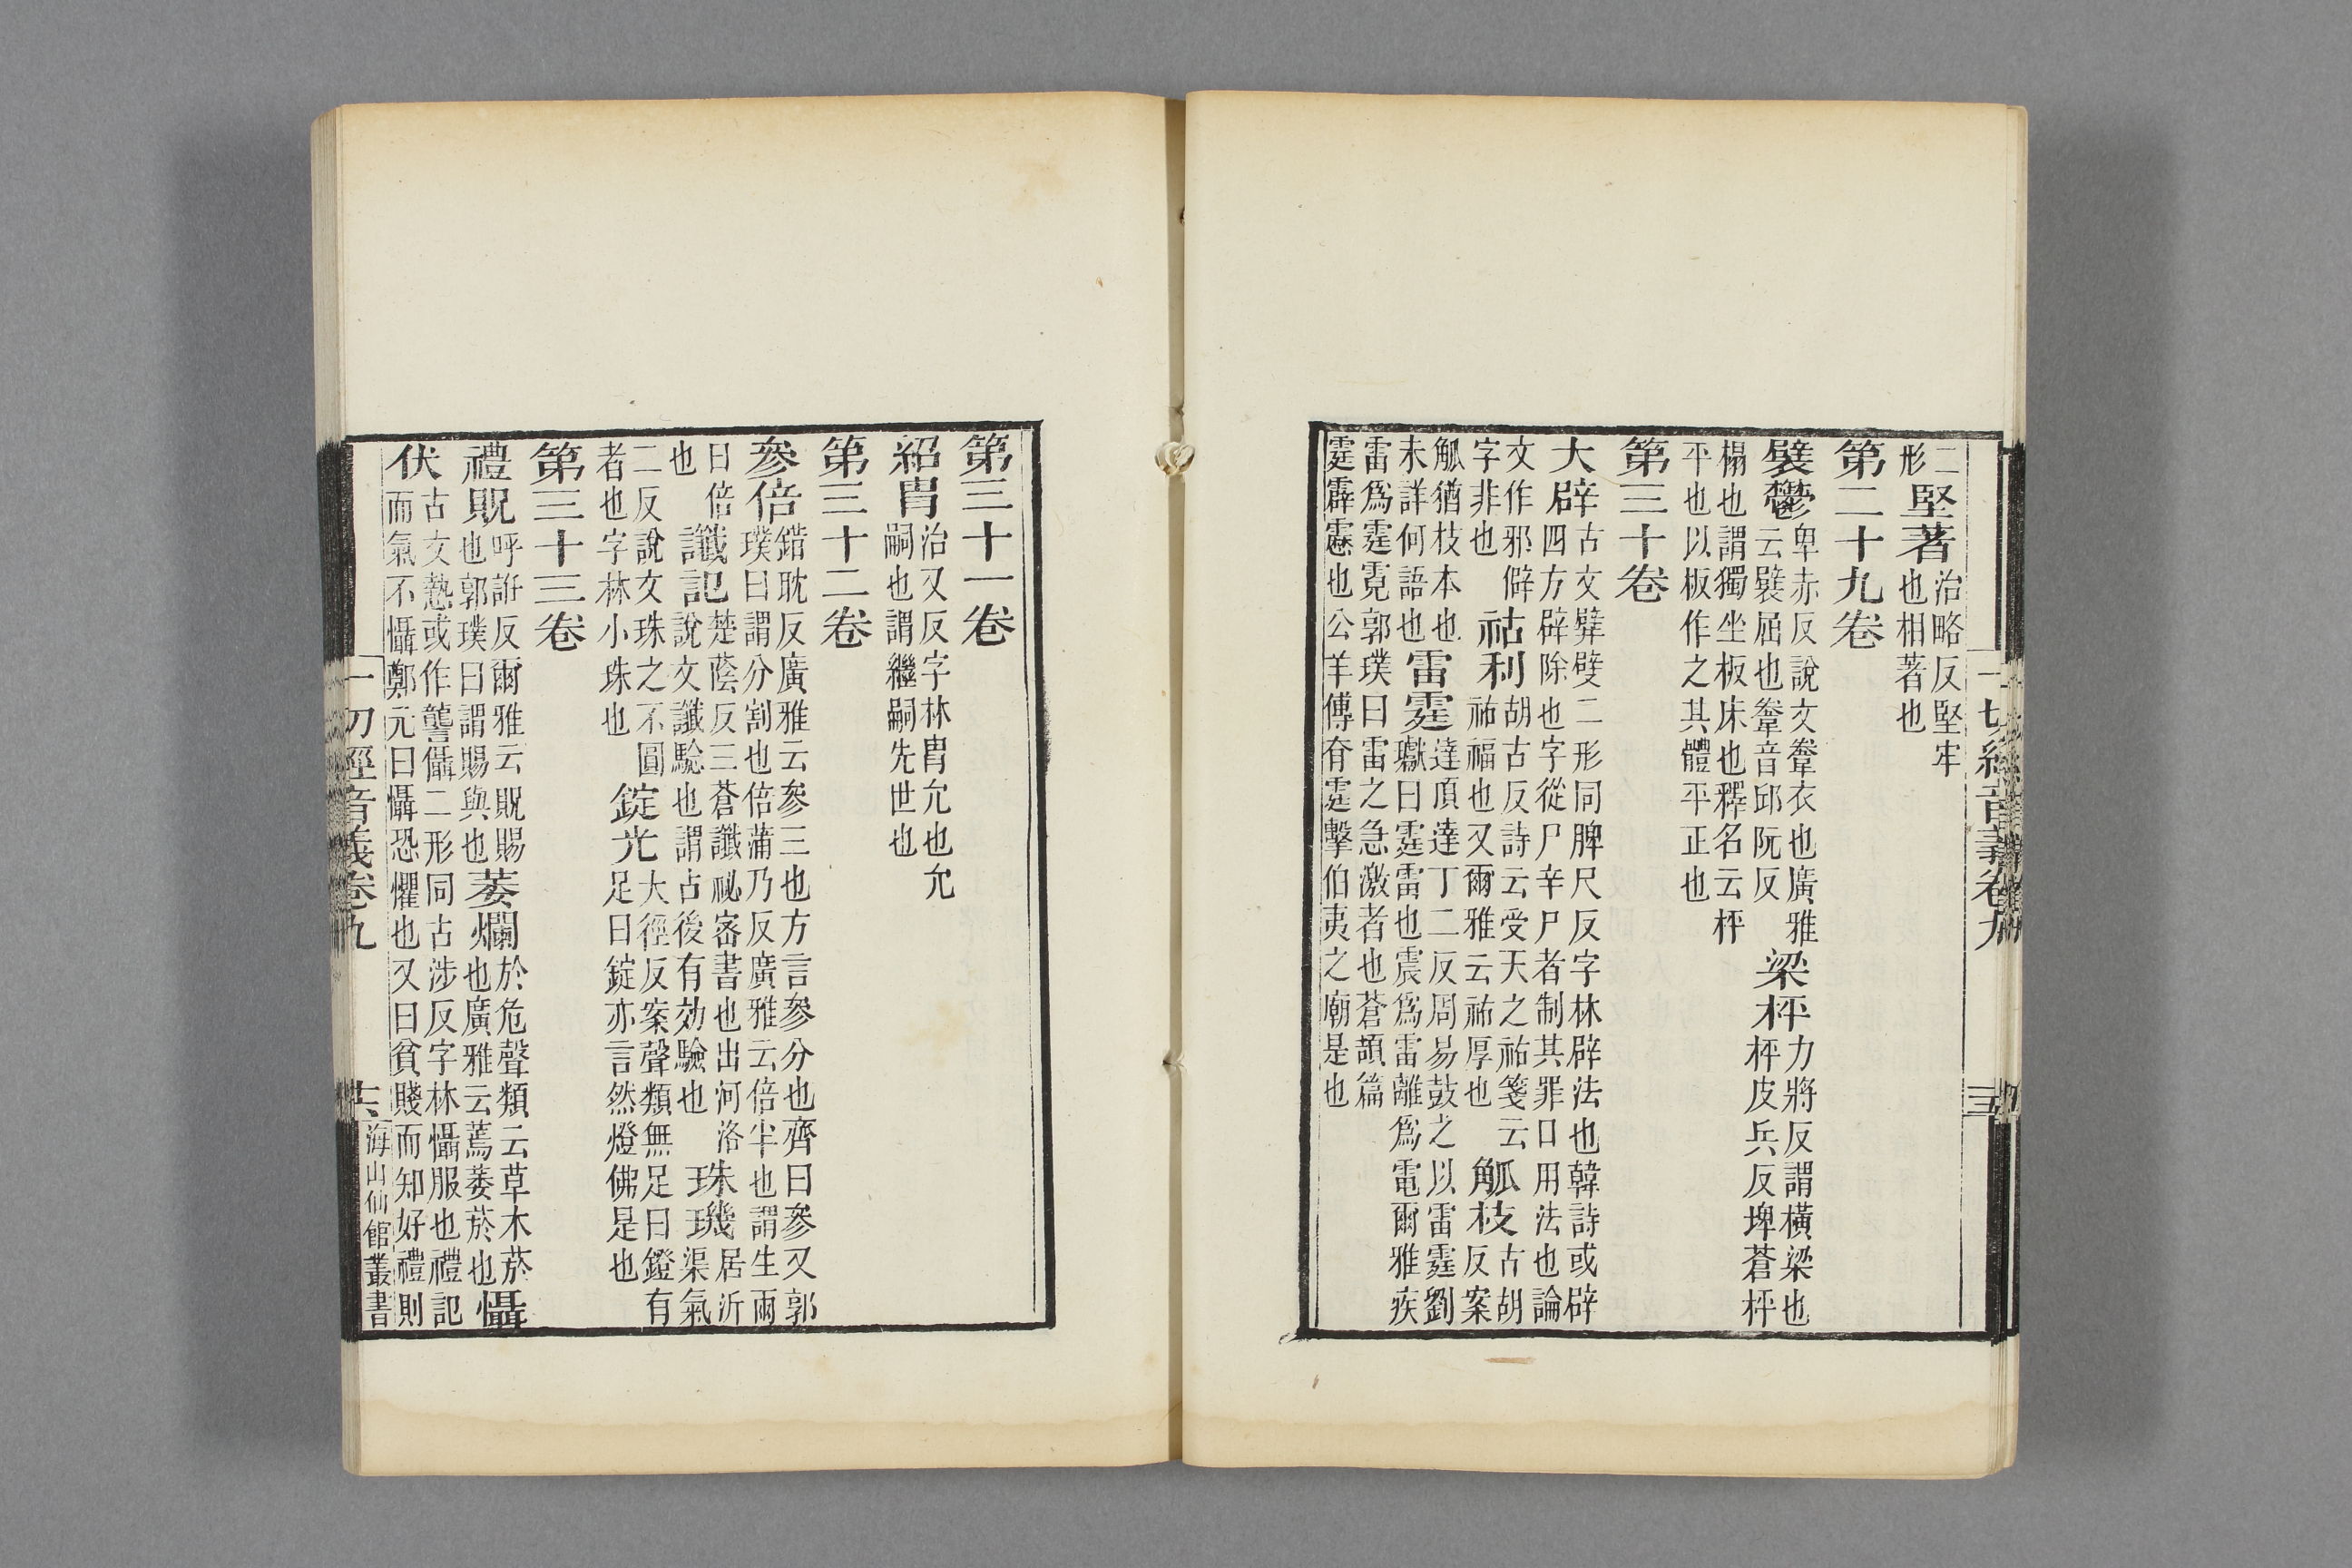 二
形
堅著
治略反堅牢
也相著也
第二十九卷
襞鬱
卑赤反說文韏衣也廣雅
云襞屈也韏音邱阮反
梁枰
力將反謂橫梁也
枰皮兵反埤蒼枰
榻也謂獨坐板床也釋名云枰
平也以板作之其體平正也
第三十卷
大辟
古文擘𨐨二形同脾尺反字林辟法也韓詩或辟
四方辟除也字從尸辛尸者制其罪口用法也論
文作邪僻
字非也
祜利
胡古反詩云受天之祜箋云
祜福也又爾雅云祜厚也
觚枝
古胡
反案
觚猶枝本也
未詳何語也
雷霆
達頂達丁二反周易鼓之以雷霆劉
瓛曰霆雷也震爲雷離爲電爾雅疾
雷爲霆霓郭璞曰雷之急激者也蒼頡篇
霆霹靂也公羊傳脊霆擊伯夷之廟是也
一切經音義卷九
第三十一卷
紹冑
治又反字林冑允也允
嗣也謂繼嗣先世也
第三十二卷
參倍
錯耽反廣雅云參三也方言參分也齊曰參又郭
璞曰謂分割也倍蒲乃反廣雅云倍半也謂生兩
曰倍
也
讖記
楚蔭反三蒼讖祕密書也出河洛
說文讖驗也謂占後有効驗也
珠璣
居沂
渠氣
二反說文珠之不圓
者也字林小珠也
錠光
大徑反案聲類無足曰鐙有
足曰錠亦言然燈佛是也
第三十三卷
禮貺
呼誑反爾雅云貺賜
也郭璞曰謂賜與也
萎爛
於危聲類云草木菸
也廣雅云蔫萎菸也
懾
伏
古文慹或作讋㒤二形同古涉反字林懾服也禮記
而氣不懾鄭元曰懾恐懼也又曰貧賤而知好禮則
一切經音義卷九
十六
海山仙館叢書